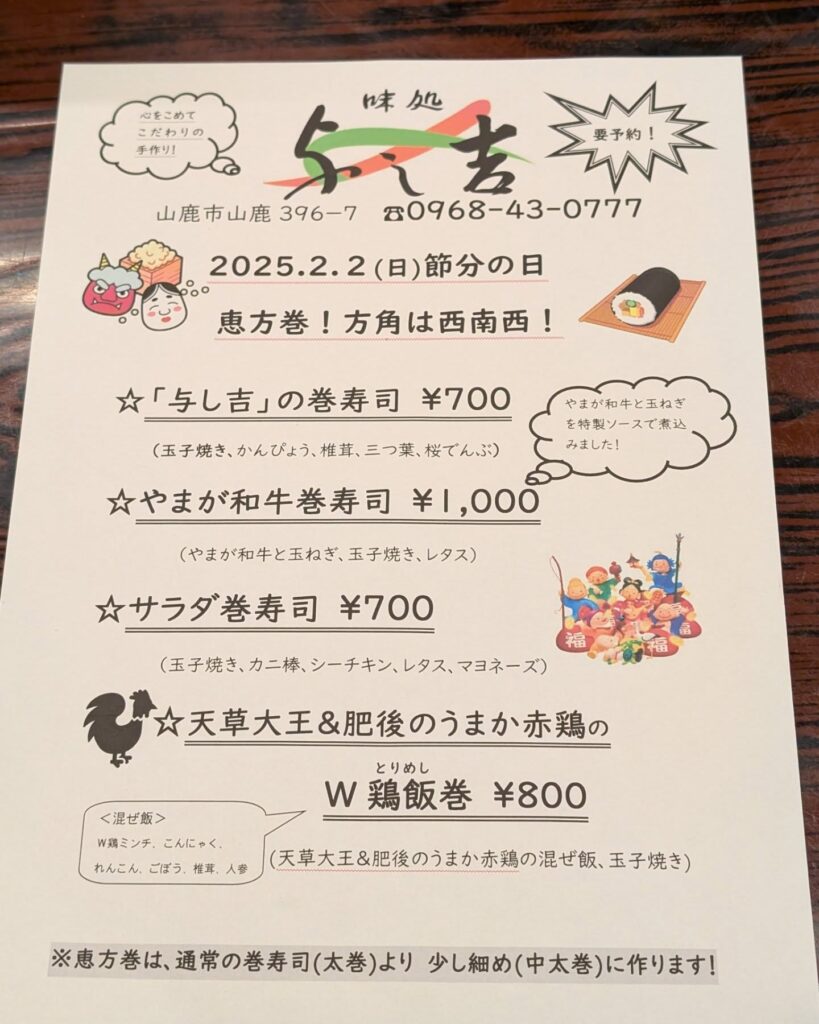 心をこめて
こだわりの
手作り!
味処
与し吉
要予約！
山鹿市山鹿 396-7 ☎0968-43-0777
2025.2.2(日)節分の日
恵方巻！方角は西南西！
☆「与し吉」の巻寿司 ¥700
(玉子焼き、かんぴょう、椎茸、三つ葉、桜でんぶ)
やまが和牛と玉ねぎ
を特製ソースで煮込
みました!
☆やまが和牛巻寿司 ¥1,000
(やまが和牛と玉ねぎ、玉子焼き、レタス)
☆サラダ巻寿司 ¥700
(玉子焼き、カニ棒、シーチキン、レタス、マヨネーズ)
福
福
福
☆天草大王&肥後のうまか赤鶏の
とりめし
W 鶏飯巻 ¥800
＜混ぜ飯＞
W鶏ミンチ、こんにゃく、
れんこん、ごぼう、椎茸、人参
(天草大王&肥後のうまか赤鶏の混ぜ飯、玉子焼き)
※恵方巻は、通常の巻寿司(太巻)より 少し細め(中太巻)に作ります!